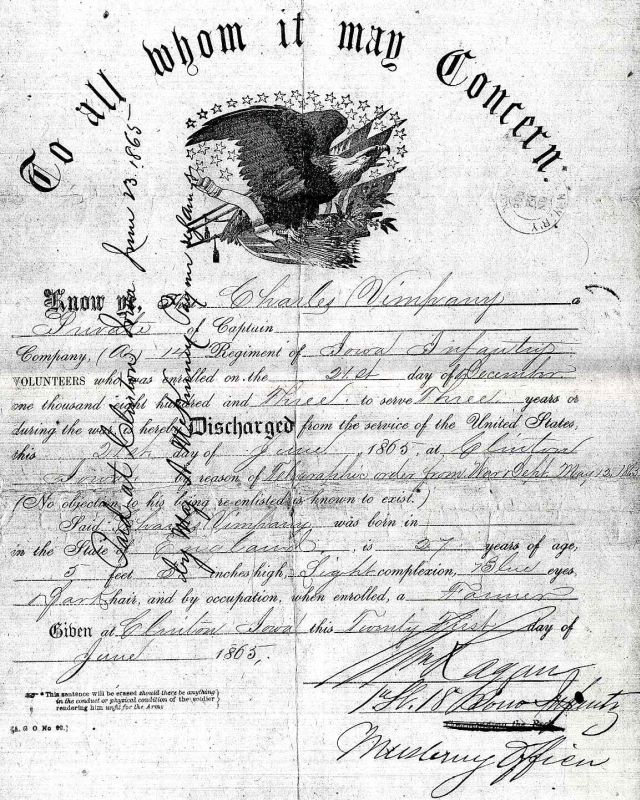 To all whom it may Concern:
Know ye, That Charles Vimpany a
Private of Captain
Company, (A) 14 Regiment of Iowa Infantry
VOLUNTEERS who was enrolled on the 21st day of December
one thousand eight hundred and Three to serve Three years or
during the war is hereby Discharged from the service of the United States,
this 21st day of June, 1865, at Clinton
Iowa by reason of Telegraphic order from War Dept May 12
(No objection to his being re-enlisted is known to exist.*)
Said Charles Vimpany was born in
in the State of England, is 27 years of age,
5 feet inches high, Light complexion, Blue eyes,
Dark hair, and by occupation, when enrolled, a Farmer
Given at Clinton Iowa this Twenty First day of
June 1865,
1st Lt. 18
Mustering Officer
*This sentence will be erased should there be anything
in the conduct or physical condition of the soldier
rendering him unfit for the Army
[A. G. O. No 99.]
Paid at Clinton Iowa June 23. 1865
by Maj